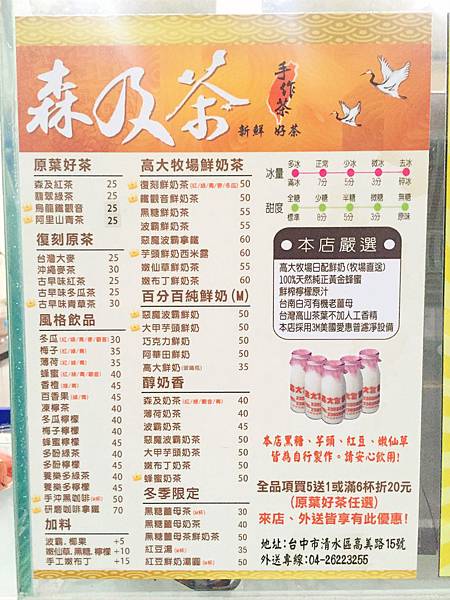 森及茶
手作茶
新鮮 好茶
原葉好茶
森及紅茶 25
翡翠綠茶 25
烏龍鐵觀音 25
阿里山青茶 25
復刻原茶
台灣大麥 25
沖繩麥茶 30
古早味紅茶 25
古早味冬瓜茶 25
古早味青草茶 30
風格飲品
冬瓜(紅/綠/青/麥/觀音) 30
梅子(紅/綠/青) 35
薄荷(紅/綠/青) 35
蜂蜜(紅/綠/青/觀音) 40
香橙(綠/青) 45
百香果(綠/青) 45
凍檸茶 40
冬瓜檸檬 40
梅子檸檬 40
蜂蜜檸檬 45
多酚綠茶 40
多酚檸檬 45
養樂多綠茶 40
養樂多檸檬 45
手沖黑咖啡 50
研磨咖啡拿鐵 70
加料
波霸, 椰果 +5
嫩仙草, 黑糖, 檸檬 +10
手工嫩布丁 +15
高大牧場鮮奶茶
復刻鮮奶茶(紅/綠/青/麥/冬瓜) 50
鐵觀音鮮奶茶 50
黑糖鮮奶茶 55
波霸鮮奶茶 55
惡魔波霸拿鐵 60
芋頭鮮奶西米露 60
嫩仙草鮮奶茶 55
嫩布丁鮮奶茶 60
百分百純鮮奶(M)
惡魔波霸鮮奶 50
大甲芋頭鮮奶 50
巧克力鮮奶 50
阿華田鮮奶 50
高大鮮奶 35
醇奶香
森及奶茶(紅/綠/觀音/青) 40
薄荷奶茶 45
波霸奶茶 45
惡魔波霸奶茶 50
大甲芋頭奶茶 50
嫩布丁奶茶 50
蜂蜜奶茶 50
冬季限定
黑糖薑母茶 40
黑糖薑母奶茶 40
黑糖薑母茶鮮奶茶 50
紅豆湯 35
紅豆鮮奶湯圓 50
冰量
多冰 正常 少冰 微冰 去冰
滿冰 7分 5分 3分 碎冰
甜度
全糖 少糖 半糖 微糖 無糖
標準 8分 5分 3分 原味
本店嚴選
高大牧場日配鮮奶(牧場直送)
100%天然純正黃金蜂蜜
鮮榨檸檬原汁
台南白河有機老薑母
台灣高山茶葉不加人工香精
本店採用3M美國愛惠普濾淨設備
本店黑糖、芋頭、紅豆、嫩仙草
皆為自行製作。請安心飲用!
全品項買5送1或滿6杯折20元
(原葉好茶任選)
來店、外送皆享有此優惠!
地址:台中市清水區高美路15號
外送專線:04-26223255